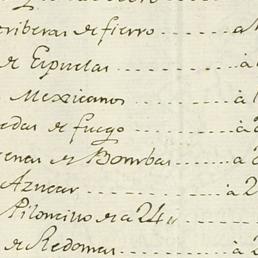 criberas de fierro ........ a
de Espuelas ........ à
Mexicanos ........ à
edas de fuego ........ à
enas de Bombas ...... à
Azucar ........ à 2
Piloncillo de a 24 „
de Redomas ........ à 2